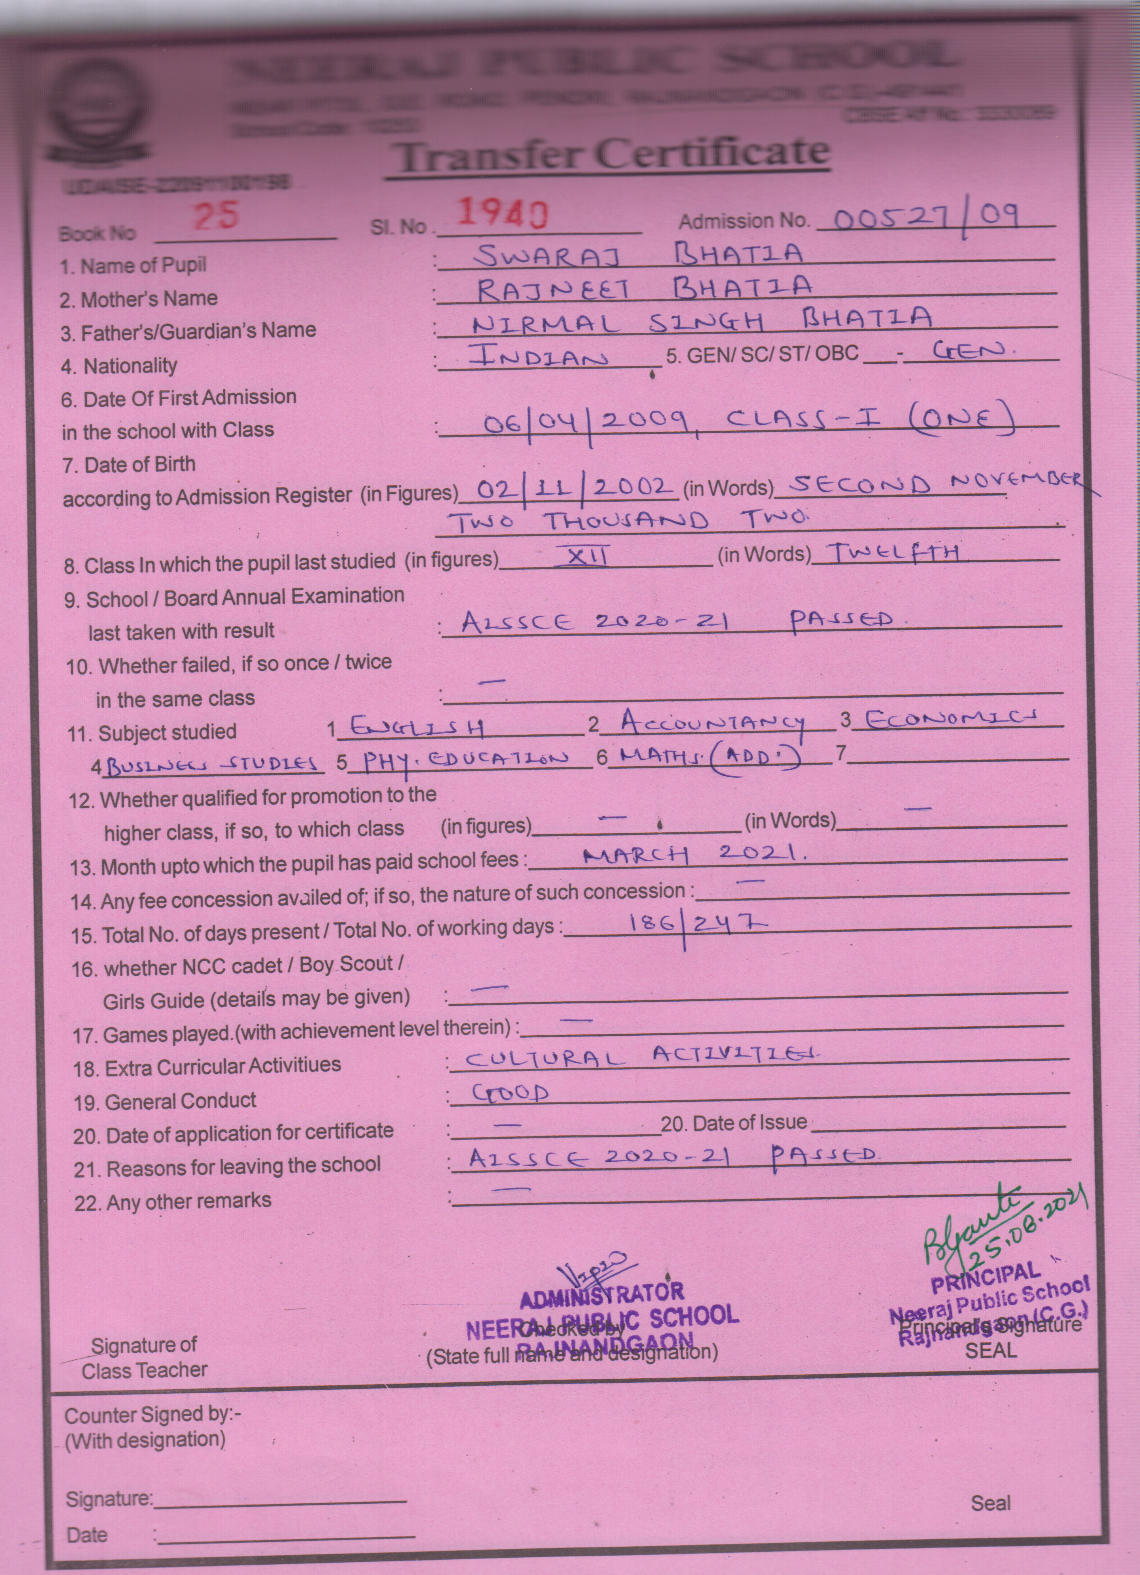 NEERAJ PUBLIC SCHOOL
CBSE Aff No.: 3330089
Transfer Certificate
UDAISE-22091100198
Book No 25 Sl. No. 1940 Admission No. 00527/09
1. Name of Pupil : SWARAJ BHATIA
2. Mother's Name : RAJNEET BHATIA
3. Father's/Guardian's Name : NIRMAL SINGH BHATIA
4. Nationality : INDIAN 5. GEN/ SC/ ST/ OBC - GEN.
6. Date Of First Admission
in the school with Class : 06/04/2009, CLASS-I (ONE)
7. Date of Birth
according to Admission Register (in Figures) 02/11/2002 (in Words) SECOND NOVEMBER
TWO THOUSAND TWO.
8. Class In which the pupil last studied (in figures) XII (in Words) TWELFTH
9. School / Board Annual Examination
last taken with result : AISSCE 2020-21 PASSED.
10. Whether failed, if so once / twice
in the same class : —
11. Subject studied 1 ENGLISH 2 ACCOUNTANCY 3 ECONOMICS
4 BUSINESS STUDIES 5 PHY. EDUCATION 6 MATHS. (ADD.) 7
12. Whether qualified for promotion to the
higher class, if so, to which class (in figures) — (in Words) —
13. Month upto which the pupil has paid school fees : MARCH 2021.
14. Any fee concession availed of; if so, the nature of such concession : —
15. Total No. of days present / Total No. of working days : 186/247
16. whether NCC cadet / Boy Scout /
Girls Guide (details may be given) : —
17. Games played.(with achievement level therein) : —
18. Extra Curricular Activitiues : CULTURAL ACTIVITIES.
19. General Conduct : GOOD
20. Date of application for certificate : — 20. Date of Issue
21. Reasons for leaving the school : AISSCE 2020-21 PASSED.
22. Any other remarks : —
25.08.2021
ADMINISTRATOR PRINCIPAL
NEERAJ PUBLIC SCHOOL Neeraj Public School
RAJNANDGAON Rajnandgaon (C.G.)
Signature of Checked by Principal's Signature
Class Teacher (State full name and designation) SEAL
Counter Signed by:-
(With designation)
Signature: Seal
Date :